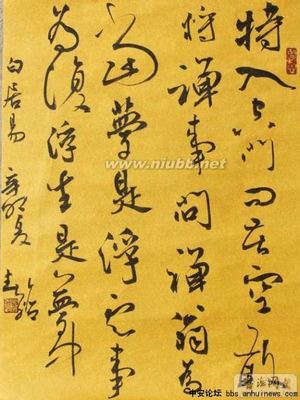 特入空门问苦空敢
将禅事问禅翁为
当梦是浮生事
为复浮生是梦中
白居易 辛卯夏
www.niubb.net
中安论坛
bbs.anhuinews.com